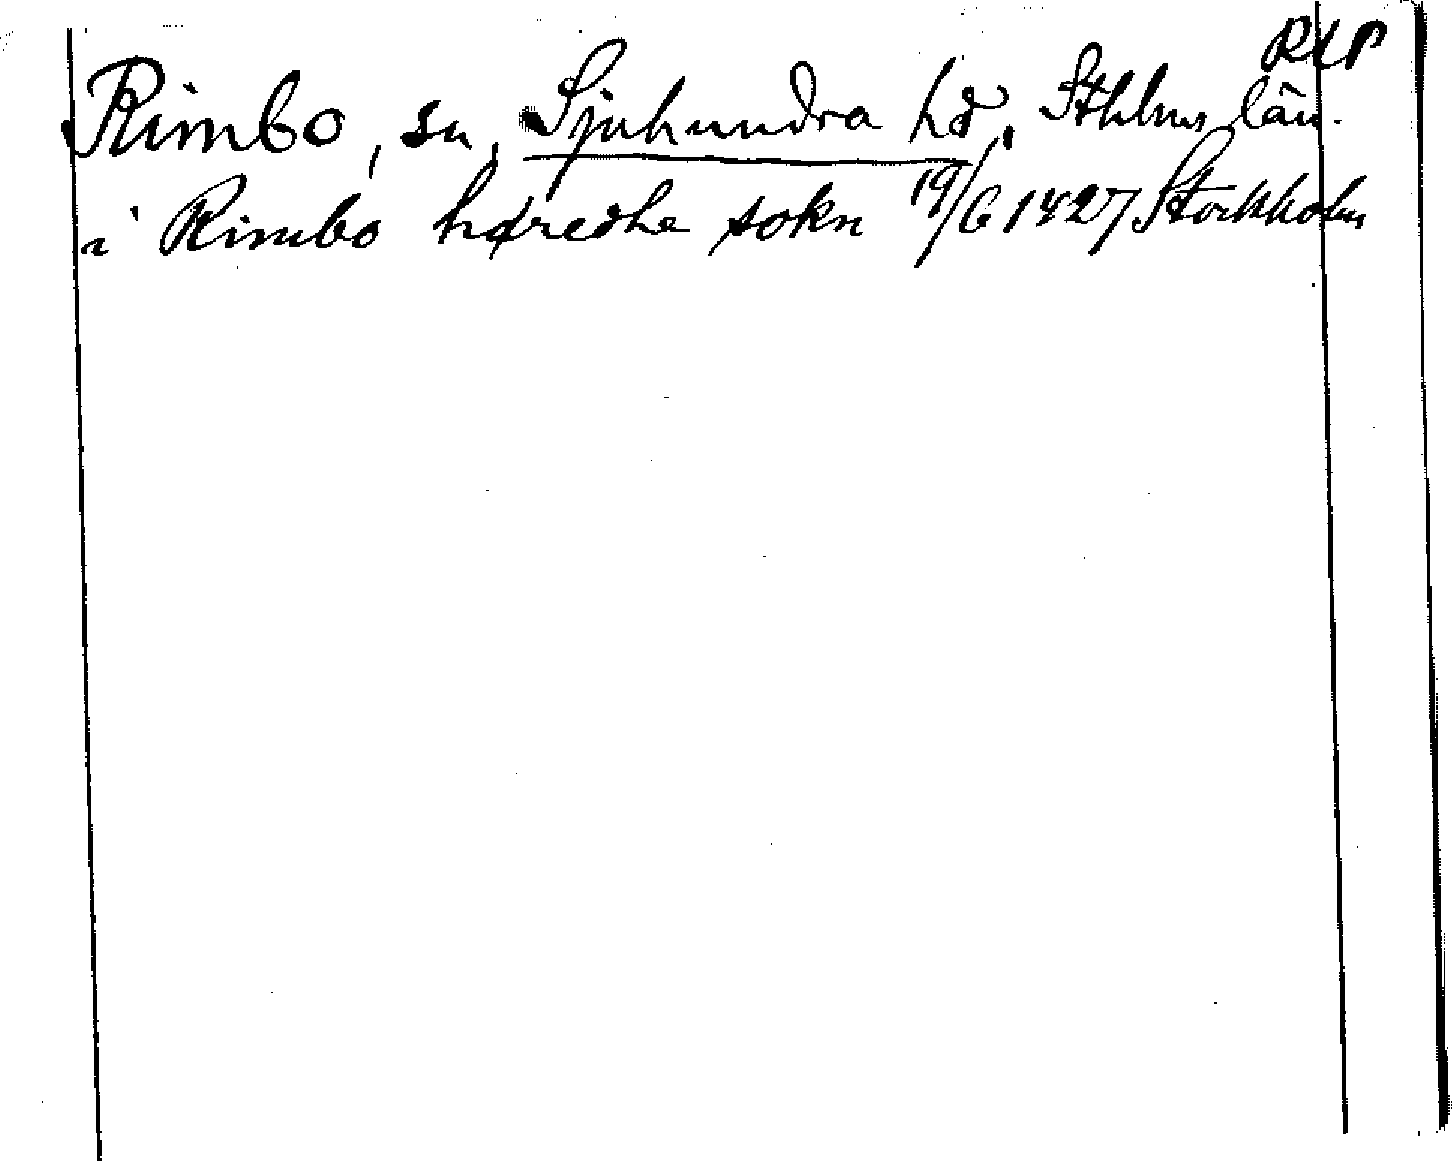 RAP
Rimbo, sn, Sjuhundra hd. Sthlms län.
i Rimbo høredhe sokn 19/6 1427 Stockholm